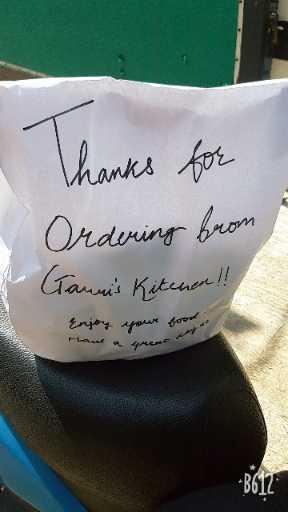 Thanks for
Ordering from
Gauri's Kitchen!!
Enjoy your food.
Have a great day
B612